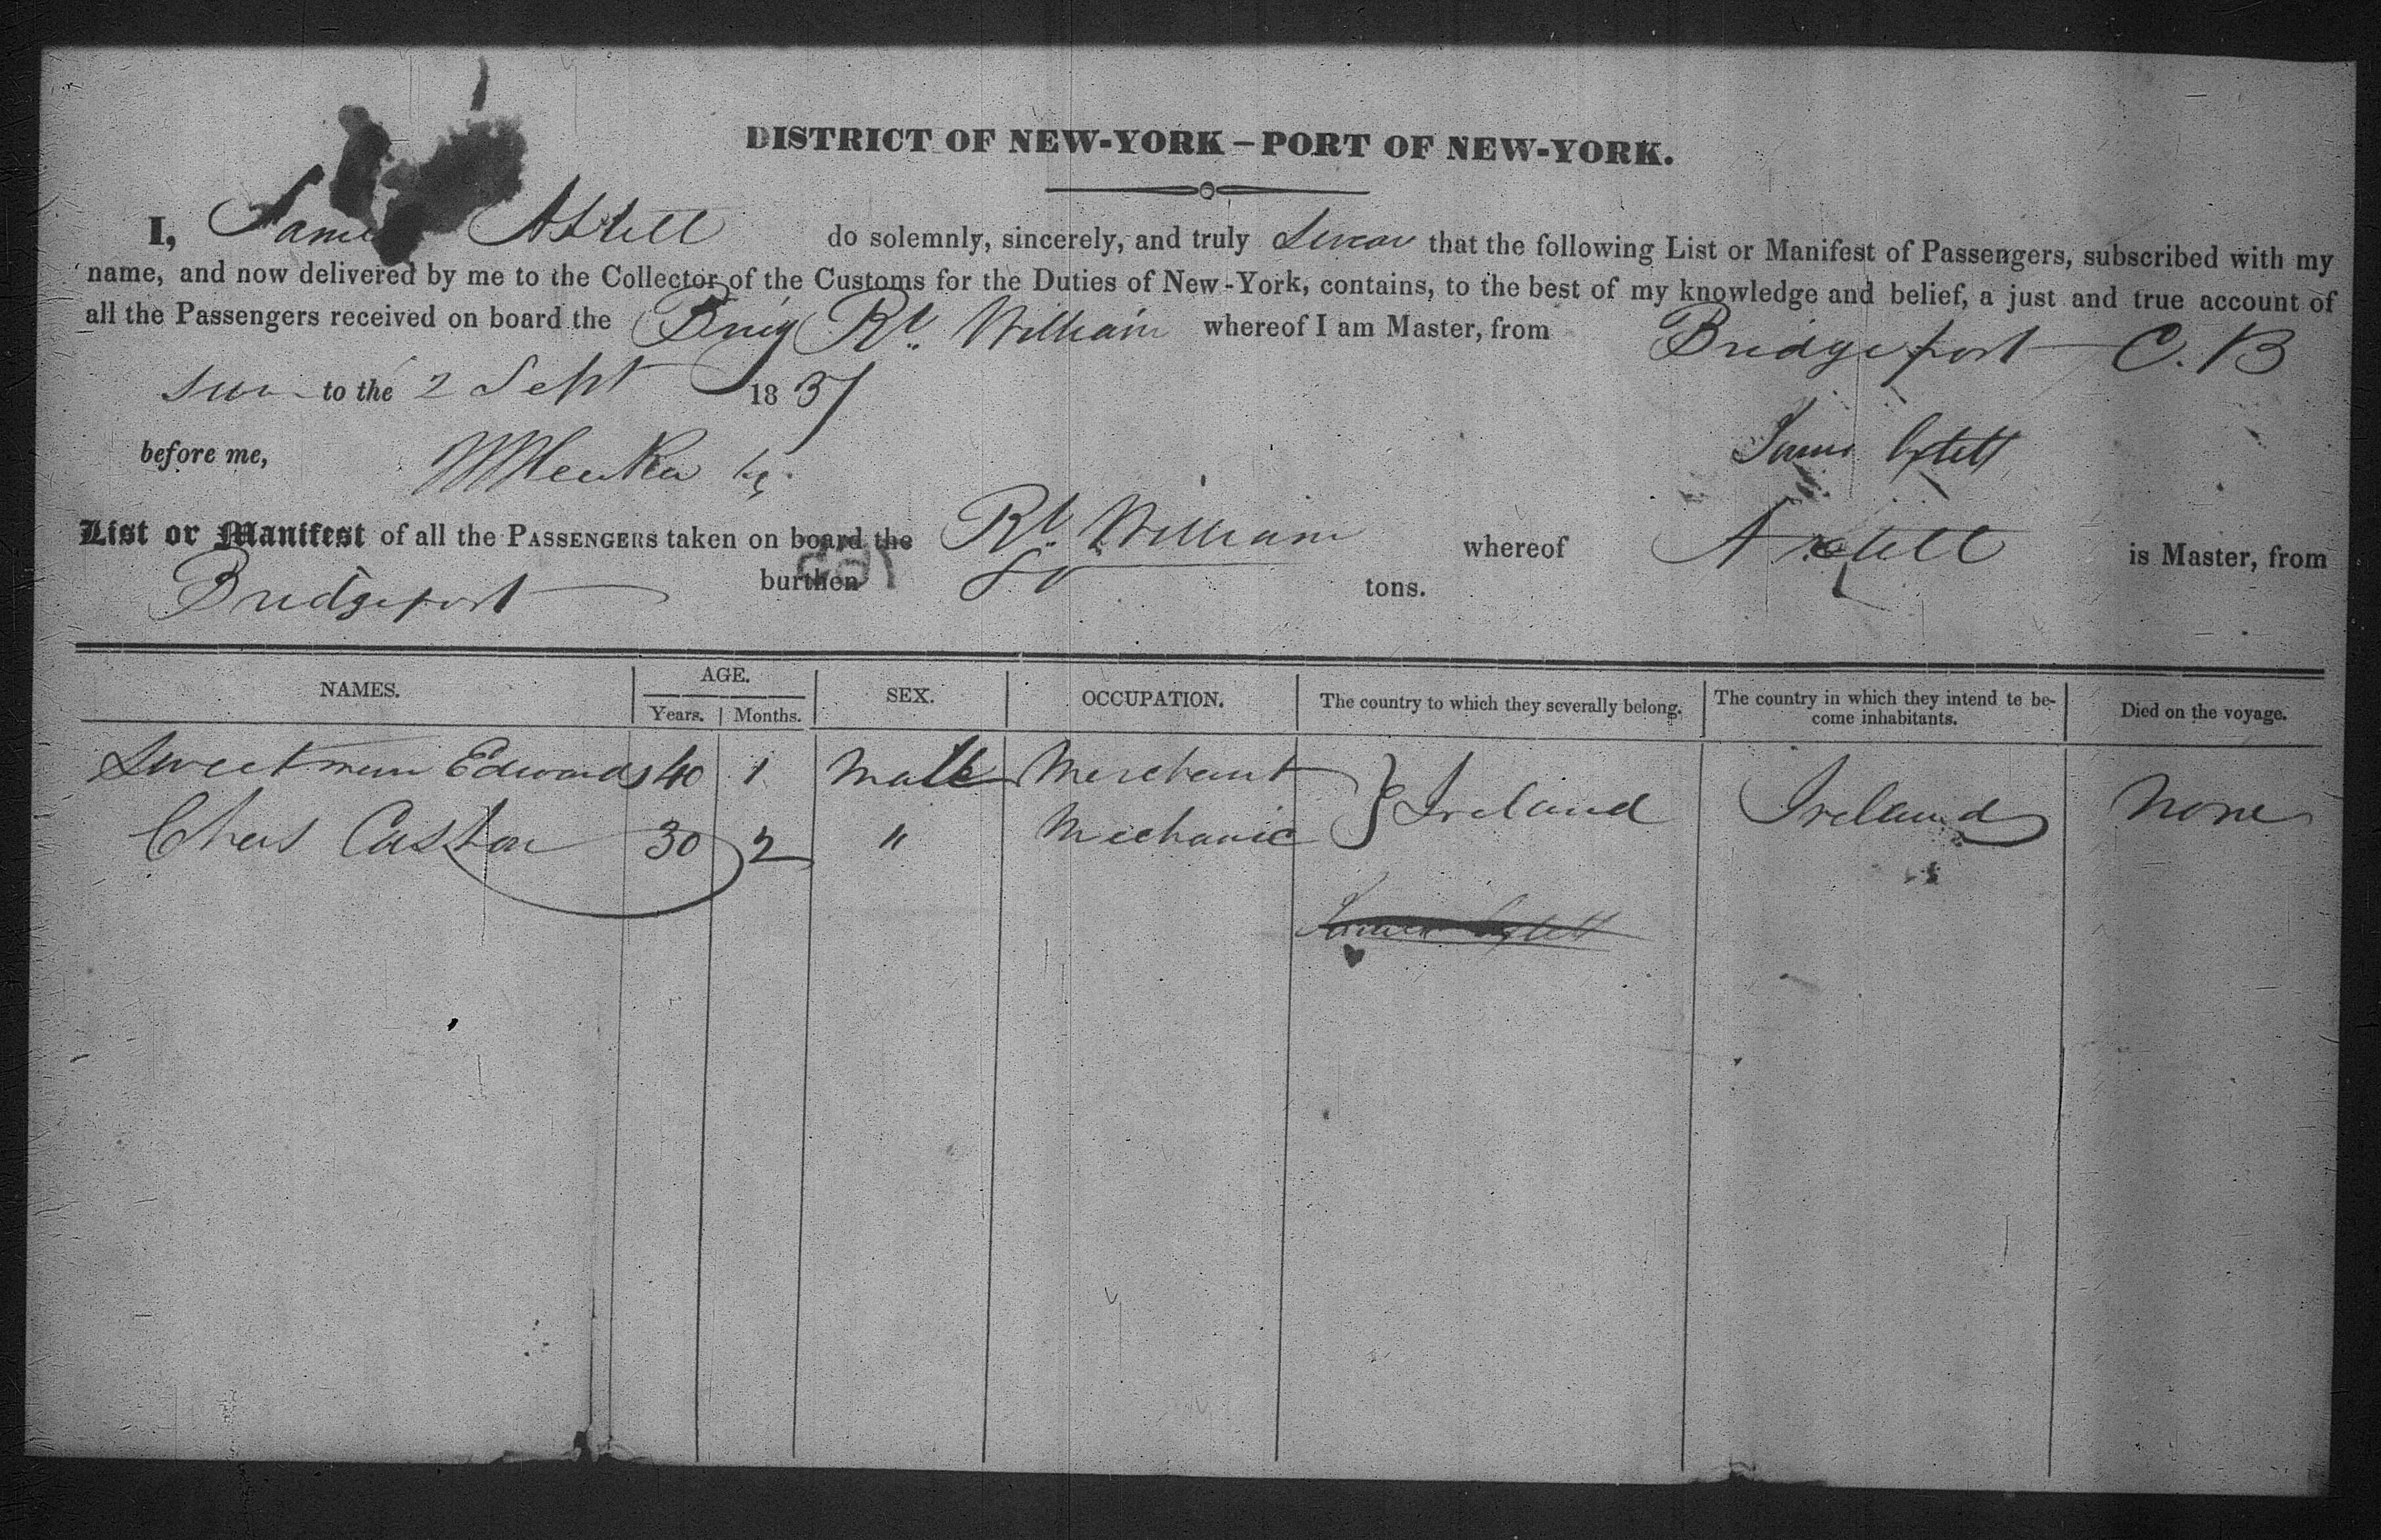 DISTRICT OF NEW-YORK – PORT OF NEW-YORK.
I, James Axtell do solemnly, sincerely, and truly Swear that the following List or Manifest of Passengers, subscribed with my
name, and now delivered by me to the Collector of the Customs for the Duties of New-York, contains, to the best of my knowledge and belief, a just and true account of
all the Passengers received on board the Brig Rl. William whereof I am Master, from Bridgeport C. B
to the 2 Sept 1837
James Axtell
before me,
List or Manifest of all the PASSENGERS taken on board the Rl. William whereof Axtell is Master, from
Bridgeport burthen tons.
NAMES. AGE. SEX. OCCUPATION. The country to which they severally belong. The country in which they intend te be-
come inhabitants. Died on the voyage.
Years. Months.
Sweetman Edwards 40 1 Male Merchant } Ireland Ireland None
Chas 30 2 " Mechanic
James Axtell